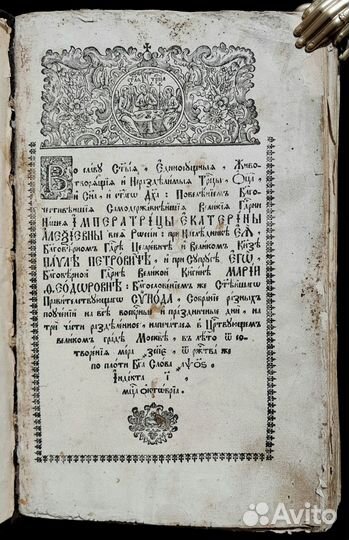 Во славу Ст҃ыѧ, Единосущныѧ, Живо-
творѧщiѧ и Нераздѣлимыѧ Трⷪ҇цы, Ѻц҃а,
и Сн҃а, и ст҃агѡ Дх҃а: Повелѣнiемъ Благо-
честивѣйшiѧ Самодержавнѣйшiѧ Великiѧ Гдⷭ҇рни
Нашеѧ ІМПЕРАТРИЦЫ ЕКАТЕРИНЫ
АЛЕѮІЕВНЫ всеѧ Рѡссiи: при Наслѣдникѣ ЕѦ,
Благовѣрномъ Гдⷭ҇рѣ Цесаревичѣ и Великомъ Кнѧзѣ
ПАѴЛѢ ПЕТРОВИЧѢ, и при Супругѣ ЕГѠ,
Благовѣрной Гдⷭ҇рнѣ Великой Кнѧгинѣ МАРІИ
ѲЕОДѠРОВНѢ: Благословенiемъ же Ст҃ѣйшагѡ
Правительствующагѡ СѴНОДА, Собранiе разныхъ
поученiй на всѣ воскрⷭ҇ныѧ и праздничныѧ дни, на
три части раздѣленное, напечатасѧ в Црⷭ҇твующемъ
великомъ градѣ Москвѣ, въ лѣто ѿ со-
творенiѧ мiра ѿ ржⷭ҇тва же
по плоти Бг҃а Слова
Індiкта
мцⷭ҇а Октѡврiа.
Avito